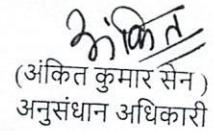 अंकित
(अंकित कुमार सेन )
अनुसंधान अधिकारी